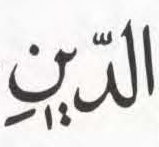 الدّينِ